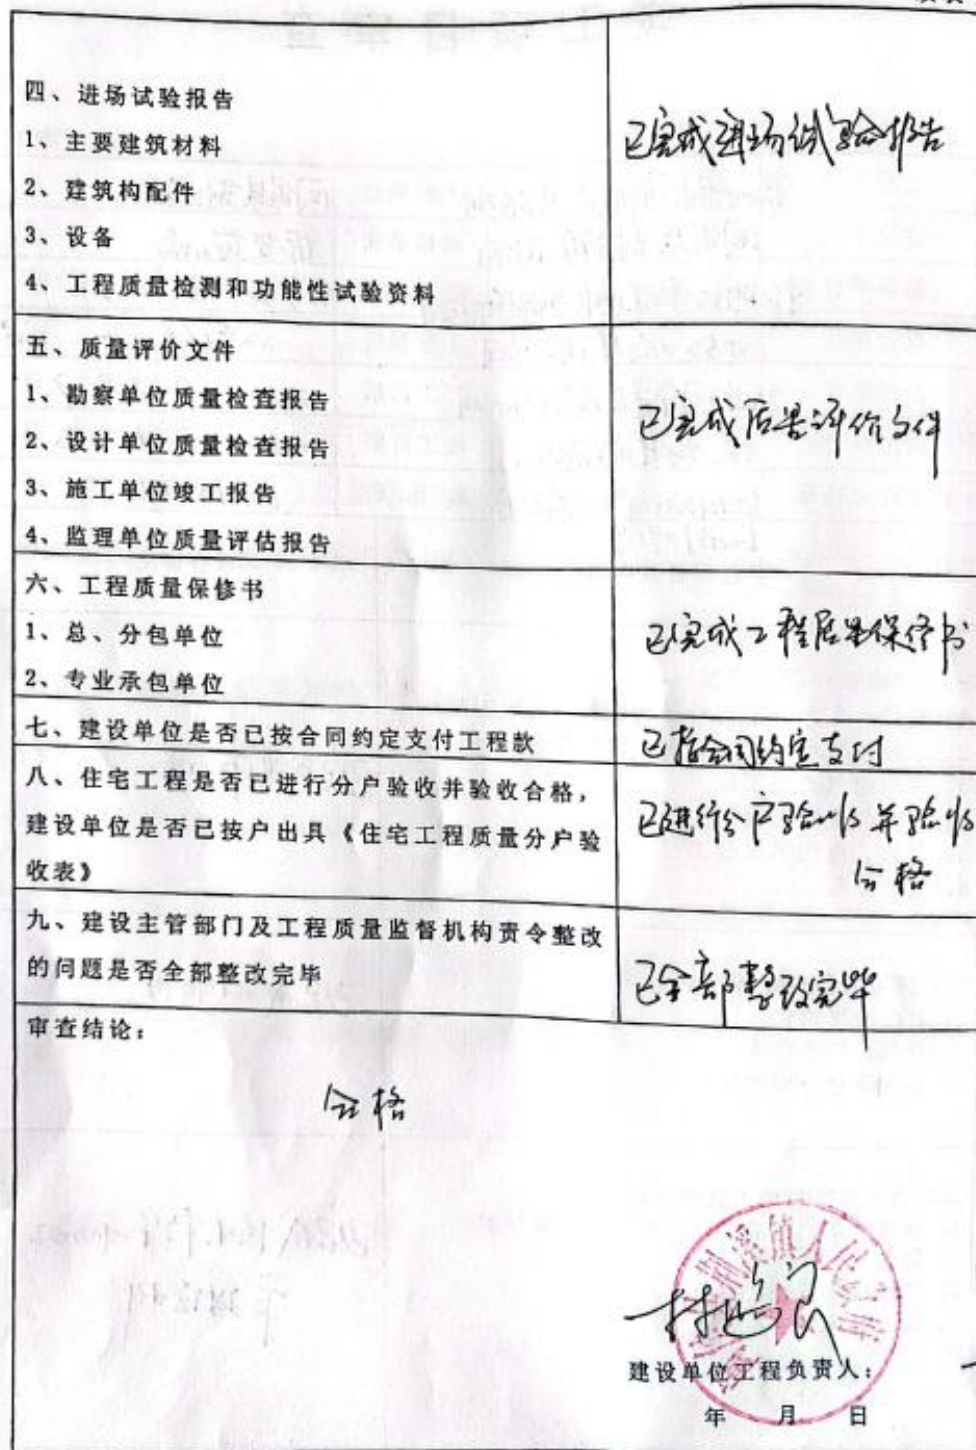 四、进场试验报告
1、主要建筑材料
2、建筑构配件
3、设备
4、工程质量检测和功能性试验资料
已完成进场试验报告
五、质量评价文件
1、勘察单位质量检查报告
2、设计单位质量检查报告
3、施工单位竣工报告
4、监理单位质量评估报告
已完成质量评价文件
六、工程质量保修书
1、总、分包单位
2、专业承包单位
已完成工程质量保修书
七、建设单位是否已按合同约定支付工程款
已按合同约定支付
八、住宅工程是否已进行分户验收并验收合格，
建设单位是否已按户出具《住宅工程质量分户验
收表》
已进行分户验收并验收
合格
九、建设主管部门及工程质量监督机构责令整改
的问题是否全部整改完毕
已全部整改完毕
审查结论：
合格
镇人民政府
建设单位工程负责人：
年 月 日